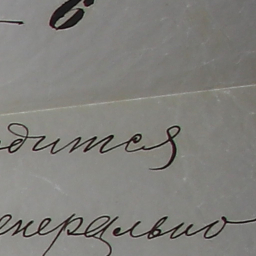 — 6
дится
енерально